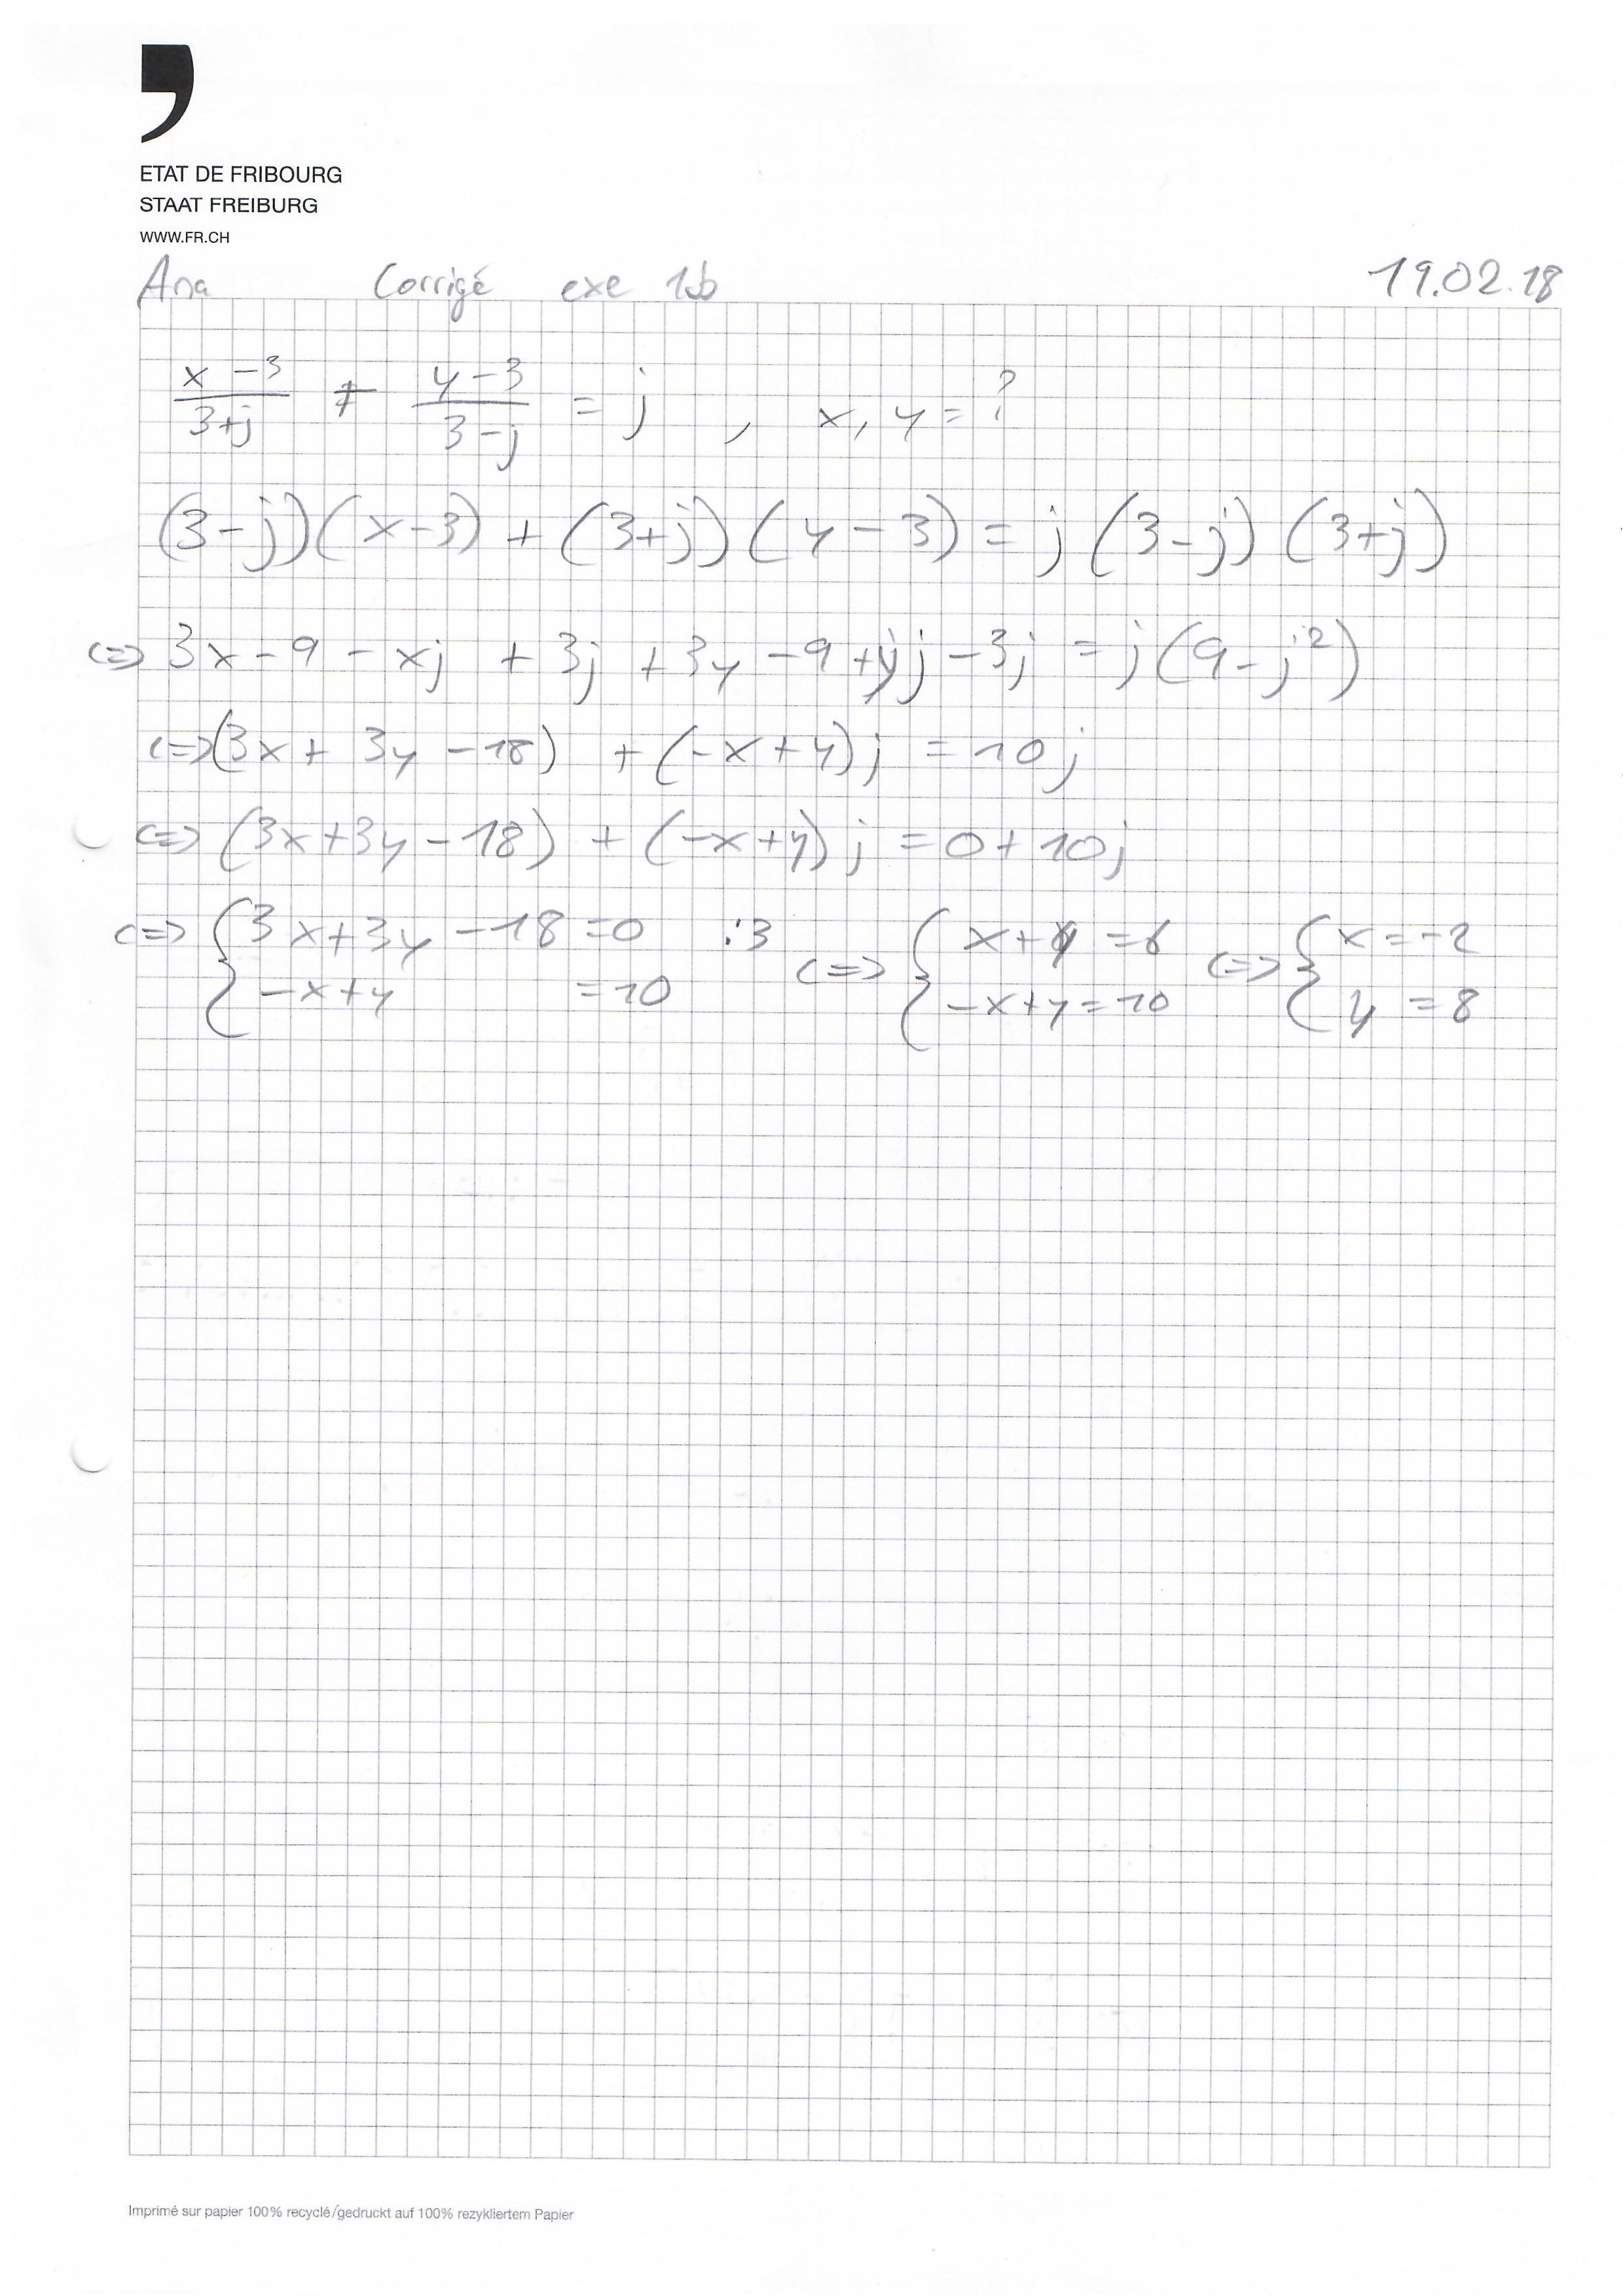 ETAT DE FRIBOURG
STAAT FREIBURG
WWW.FR.CH
Ana Corrigé exe 1b 19.02.18
(x-3)/(3+j) + (y-3)/(3-j) = j , x, y = ?
(3-j)(x-3) + (3+j)(y-3) = j(3-j)(3+j)
<=> 3x-9-xj+3j+3y-9+yj-3j = j(9-j²)
<=> (3x+3y-18) + (-x+y)j = 10j
<=> (3x+3y-18) + (-x+y)j = 0+10j
<=> { 3x+3y-18=0 :3 <=> { x+y=6 <=> { x=-2
-x+y =10 -x+y=10 y=8
Imprimé sur papier 100% recyclé/gedruckt auf 100% rezykliertem Papier